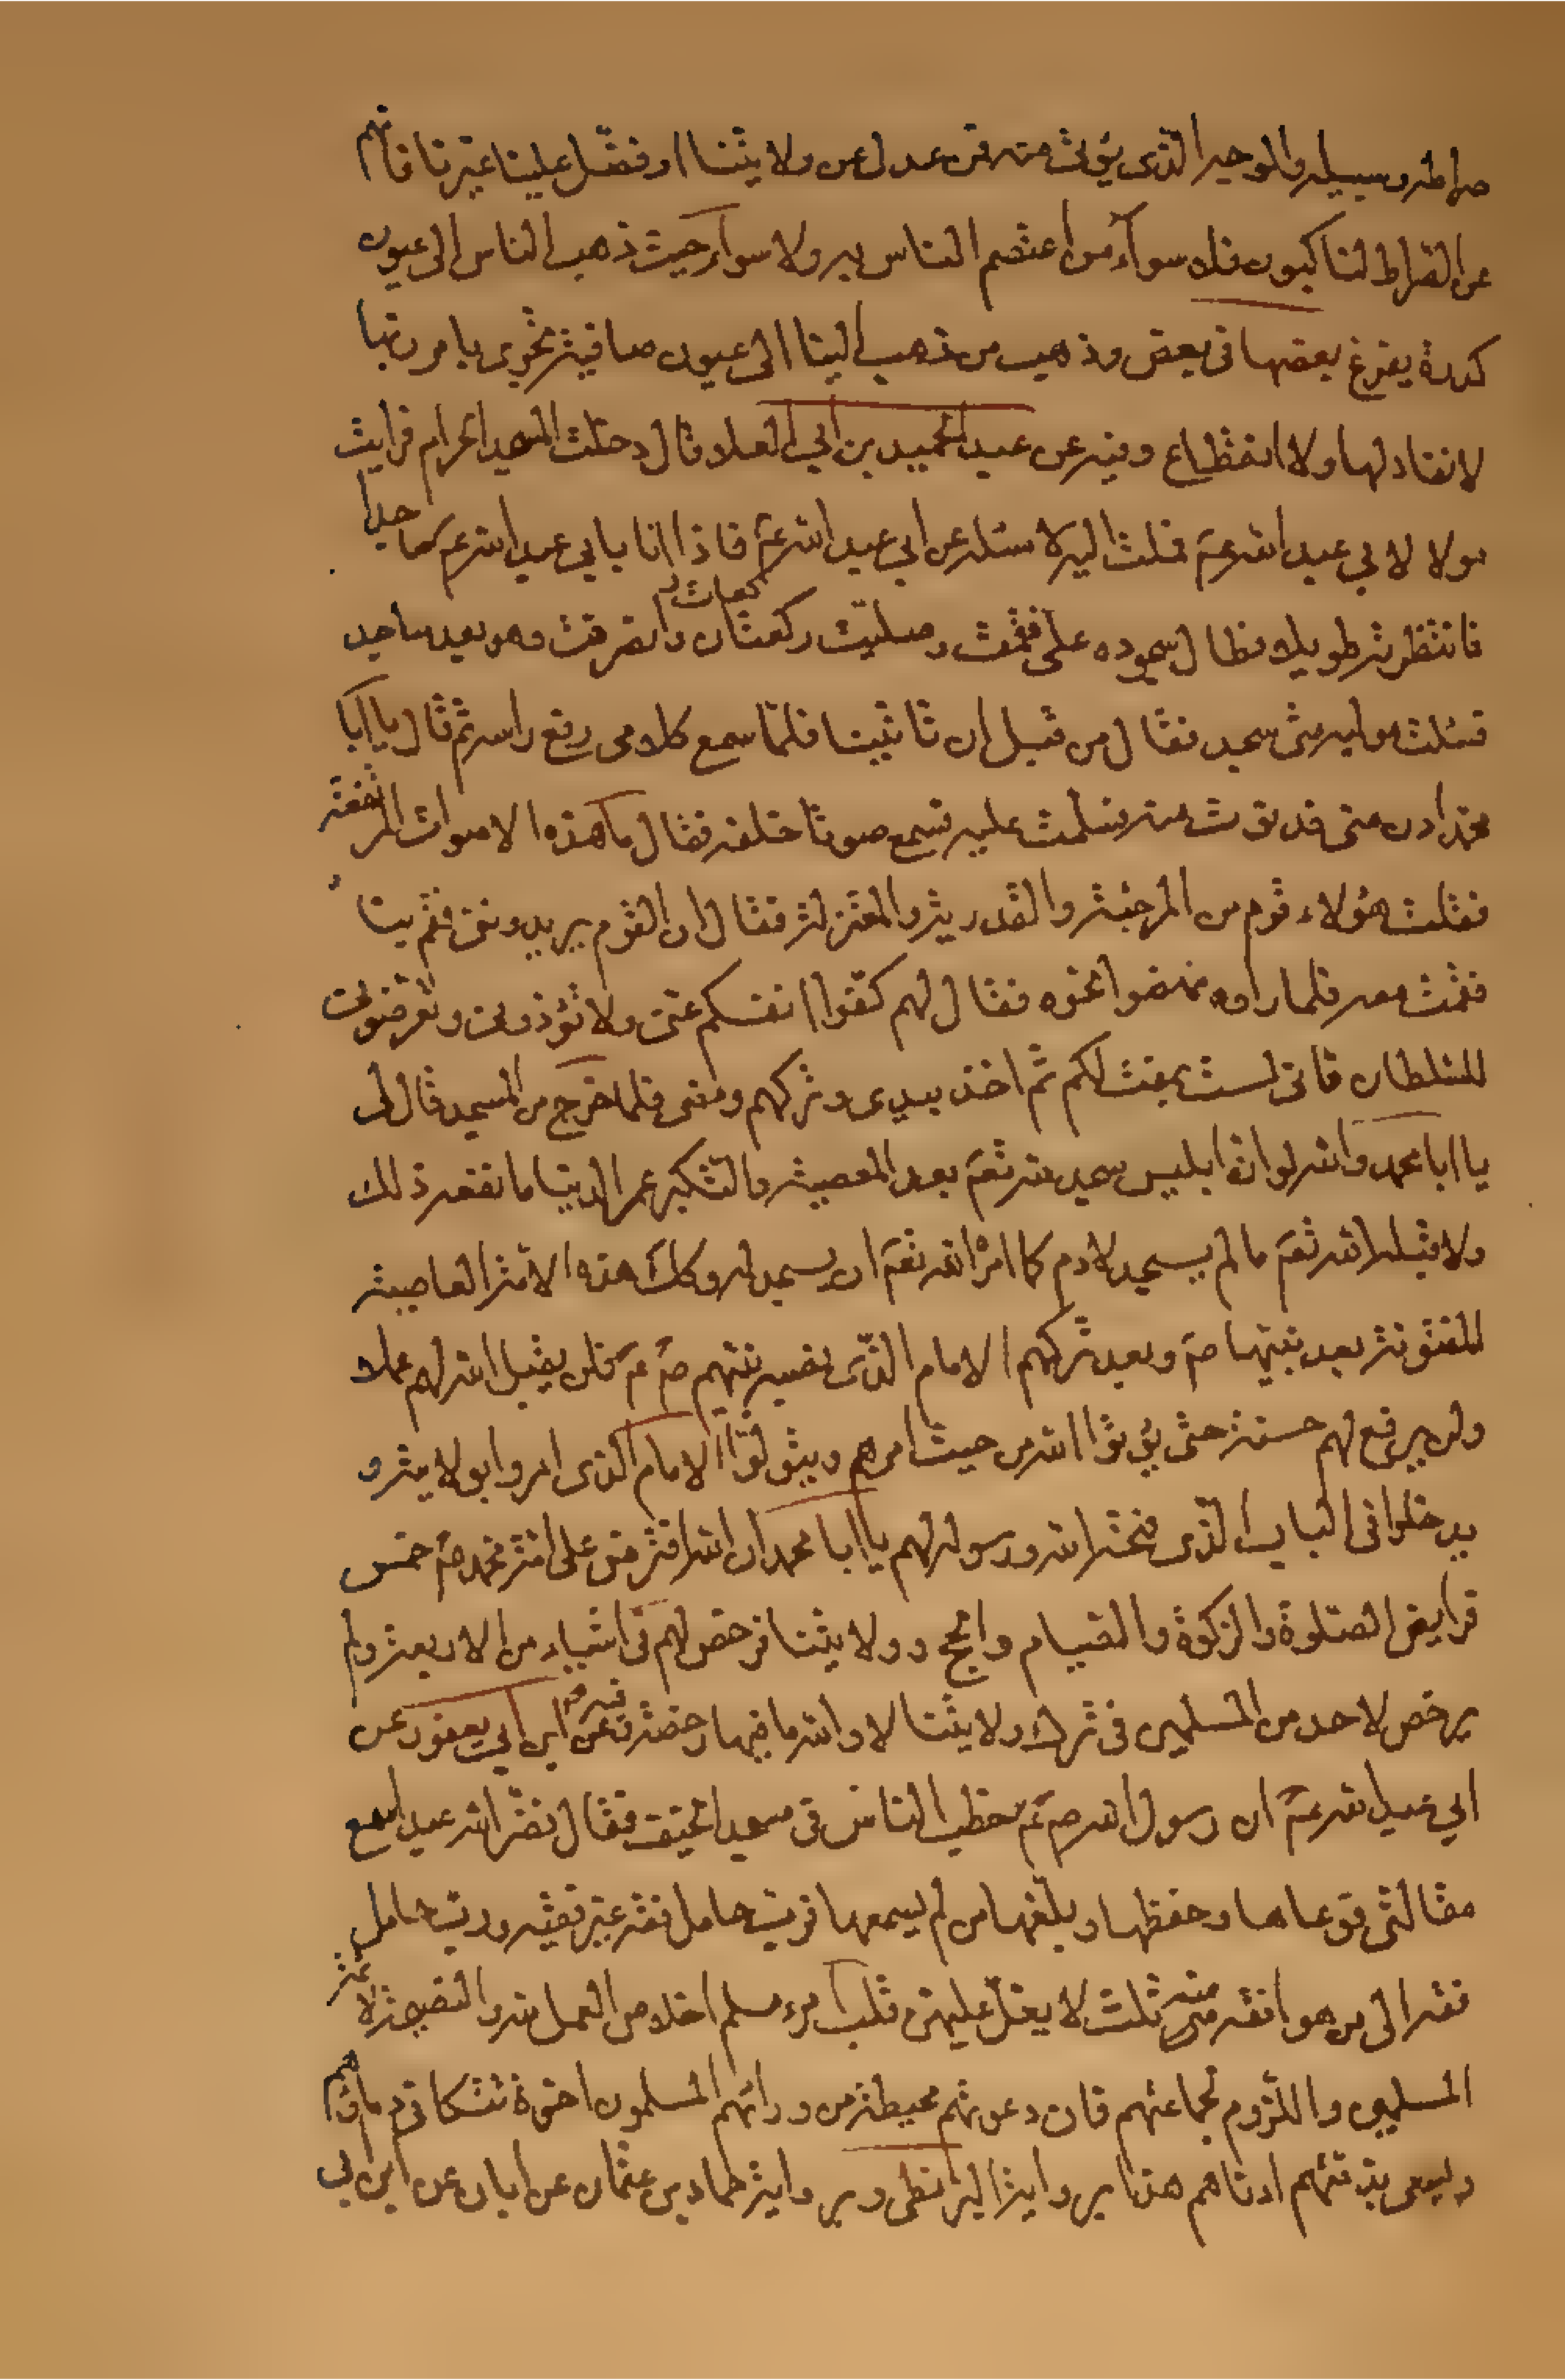 صراطه وسبيله والوجه الذى يؤتى منه فمن عدل عن ولايتنا او فضل علينا غيرنا فانهم
عن الصراط لناكبون فلا سواء من اعتصم الناس به ولا سواء حيث ذهب الناس الى عيون
كدرة يفرغ بعضها فى بعض وذهب من ذهب الينا الى عيون صافية تجرى بامر ربها
لا نفاد لها ولا انقطاع وفيه عن عبد الحميد بن ابي العلا قال دخلت المسجد الحرام فرايت
مولا لابي عبد الله عم فملت اليه لاسئله عن ابي عبد الله عم فاذا انا بابي عبد الله عم ساجدا
فانتظرته طويلا فطال سجوده على فقمت وصليت ركعتان ركعات وانصرفت وهو بعد ساجد
فسئلت مواليه متى سجد فقال من قبل ان تاتينا فلما سمع كلامى رفع راسه ثم قال يا ابا
محمد ادن منى فدنوت منه فسلمت عليه فسمع صوتا خلفه فقال ما هذه الاصوات المرتفعة
فقلت هؤلاء قوم من المرجئة والقدرية والمعتزلة فقال ان القوم يريدونى فقم بنا
فقمت معه فلما راوه نهضوا نحوه فقال لهم كفوا انفسكم عنى ولا تؤذونى وتعرضونى
للسلطان فانى لست بمفت لكم ثم اخذ بيدى وتركهم ومضى فلما خرج من المسجد قال لى
يا ابا محمد والله لو ان ابليس سجد لله تعم بعد المعصية والتكبر عمر الدنيا ما نفعه ذلك
ولا قبله الله تعم ما لم يسجد لادم كما امره الله تعم ان يسجد له وكذلك هذه الامة العاصية
المفتونة بعد نبيها صم وبعد تركهم الامام الذى نصبه نبيهم صم لهم فلن يقبل الله لهم عملا
ولن يرفع لهم حسنة حتى يؤتوا الله من حيث امرهم ويتولوا الامام الذى امروا بولايته و
يدخلوا فى الباب الذى فتحه الله ورسوله لهم يا ابا محمد ان الله افترض على امة محمد صم خمس
فرايض الصلوة والزكوة والصيام والحج وولايتنا فرخص لهم فى اشياء من الاربعة ولم
يرخص لاحد من المسلمين فى ترك ولايتنا لا والله ما فيها رخصة وفيه عن ابن ابي يعفور عن
ابي عبد الله عم ان رسول الله صم خطب الناس فى مسجد الخيف فقال نضر الله عبدا سمع
مقالتى فوعاها وحفظها وبلغها من لم يسمعها فرب حامل فقه غير فقيه ورب حامل
فقه الى من هو افقه منه ثلث لا يغل عليهن قلب امرء مسلم اخلاص العمل لله والنصيحة لائمة
المسلمين واللزوم لجماعتهم فان دعوتهم محيطة من ورائهم المسلمون اخوة تتكافى دمائهم
ويسعى بذمتهم ادناهم هذا برواية البزنطى وبرواية حماد بن عثمان عن ابان عن ابن ابى